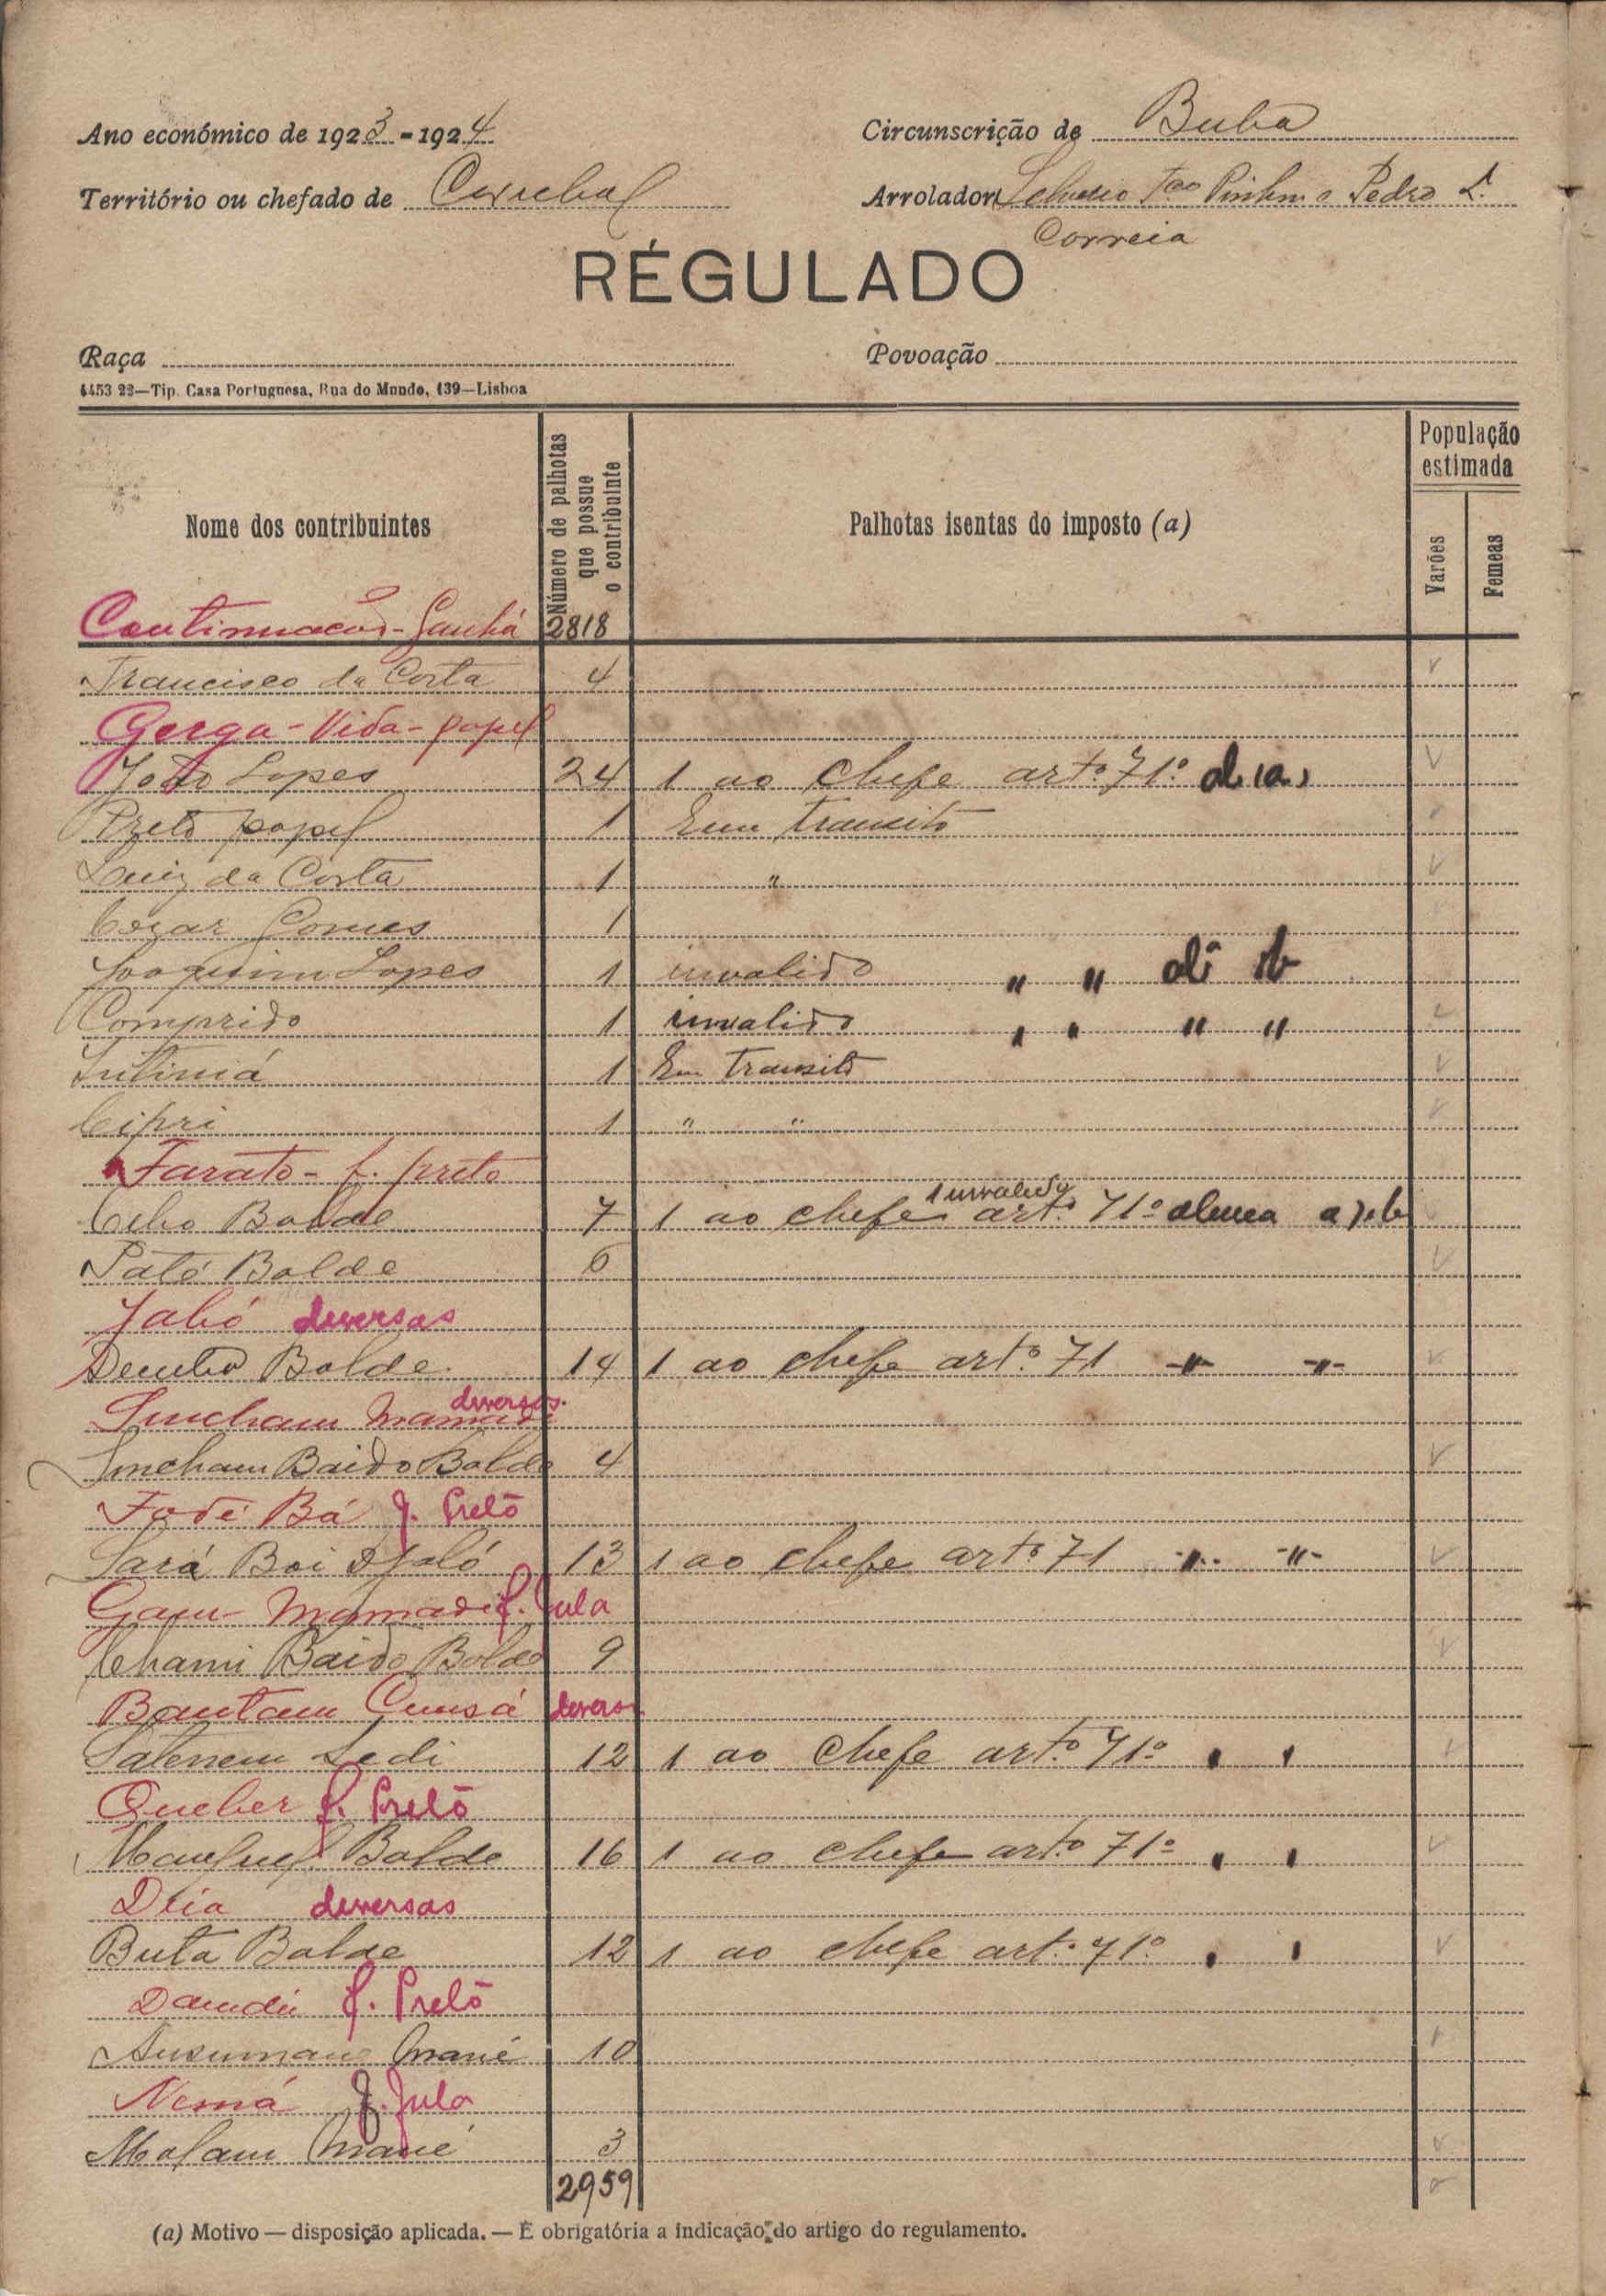 Ano económico de 1923-1924
Circunscrição de Buba
Território ou chefado de Corubal
Arrolador Pinheiro e Pedro
Correia
RÉGULADO
Raça
Povoação
4453 22—Tip. Casa Portuguesa, Rua do Mundo, 139—Lisboa
Nome dos contribuintes
Número de palhotas que possue o contribuinte
Palhotas isentas do imposto (a)
População estimada
Varões
Femeas
Continuação - 2818
Francisco da Costa 4
Gerga - Vida - papel
João Lopes 24 1 ao chefe artº 71º al. (a)
Preto papel 1 Em transito
Luiz da Costa 1 "
Cezar Gomes 1
Joaquim Lopes 1 invalido " "
Comprido 1 invalido " " " "
1 Em transito
Cipri 1 " "
Farato - f. preto
1 invalido
Baldé 7 1 ao chefe artº 71º alinea a) e b
Paté Balde 6
Jabó diversas
Demba Balde 14 1 ao chefe artº 71 -"- -"-
diversas
Sincham Mamadi
Sincham Baido Balde 4
Fodé Bá f. Preto
Sará Boi Djaló 13 1 ao chefe artº 71 -"- -"-
Gam-Mamadi f. Fula
Chami Baido Balde 9
Bantam Cunsá diversas
Sedi 12 1 ao chefe artº 71º " "
Queber f. Preto
Balde 16 1 ao chefe artº 71º " "
diversas
Buta Balde 12 1 ao chefe artº 71º " "
f. Preto
Mané 10
Nemá f. Fula
Malam Mané 3
2959
(a) Motivo — disposição aplicada. — É obrigatória a indicação do artigo do regulamento.